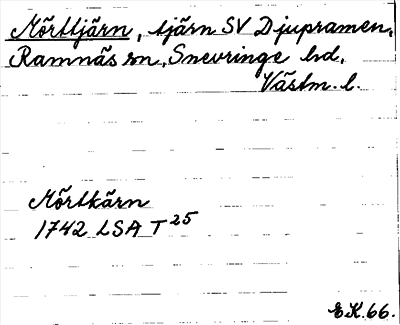 Mörttjärn, tjärn SV Djupramen,
Ramnäs sn, Snevringe hd,
Västm. l.
Mörtkärn
1742 LSA T 25
E.K. 66.